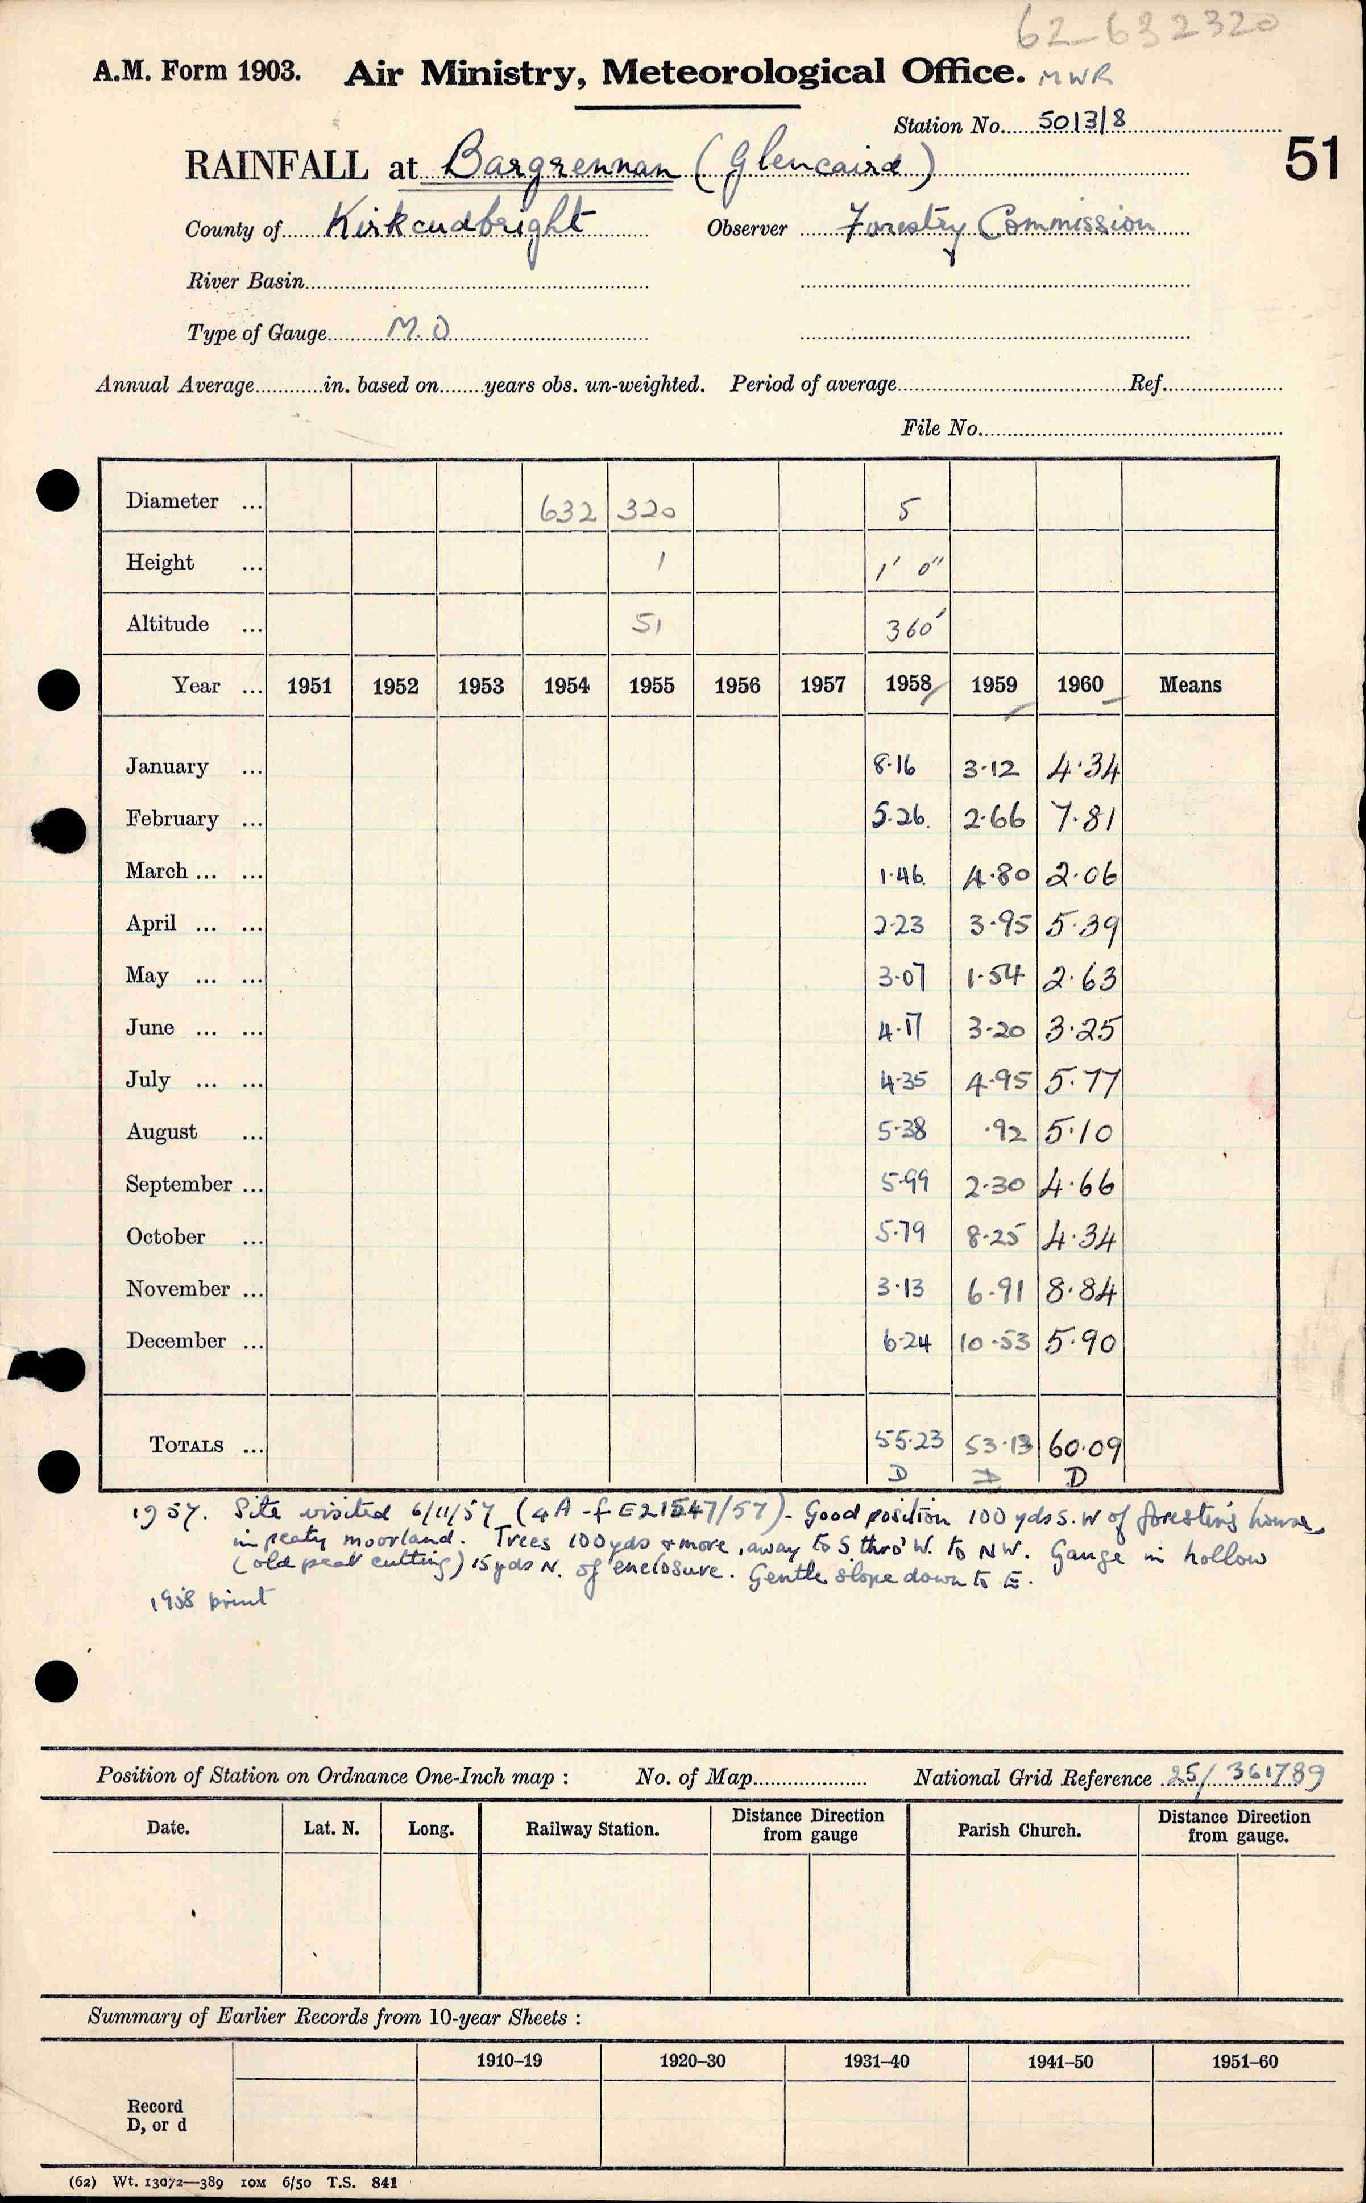 62 632320
A.M. Form 1903. Air Ministry, Meteorological Office. MWR
Station No. 5013/8
51
RAINFALL at Bargrennan (Glencaird)
County of Kirkcudbright Observer Forestry Commission
River Basin
Type of Gauge M.O
Annual Average in. based on years obs. un-weighted. Period of average Ref.
File No.
Diameter ... 632 320 5
Height ... 1 1' 0"
Altitude ... 51 360'
Year ... 1951 1952 1953 1954 1955 1956 1957 1958 1959 1960 Means
January ... 8.16 3.12 4.34
February ... 5.26 2.66 7.81
March ... ... 1.46 4.80 2.06
April ... ... 2.23 3.95 5.39
May ... ... 3.07 1.54 2.63
June ... ... 4.17 3.20 3.25
July ... ... 4.35 4.95 5.77
August ... 5.38 .92 5.10
September ... 5.99 2.30 4.66
October ... 5.79 8.25 4.34
November ... 3.13 6.91 8.84
December ... 6.24 10.53 5.90
TOTALS ... 55.23 53.13 60.09
D D D
1957. Site visited 6/11/57 (4A -f E21547/57) - Good position 100 yds S.W of forester's house
in peaty moorland. Trees 100 yds & more away to S thro' W. to NW. Gauge in hollow
(old peat cutting) 15 yds N. of enclosure. Gentle slope down to E.
1958 print
Position of Station on Ordnance One-Inch map : No. of Map National Grid Reference 25/361789
Date. Lat. N. Long. Railway Station. Distance Direction from gauge Parish Church. Distance Direction from gauge.
Summary of Earlier Records from 10-year Sheets :
1910–19 1920–30 1931–40 1941–50 1951–60
Record
D, or d
(62) Wt. 13072—389 10M 6/50 T.S. 841